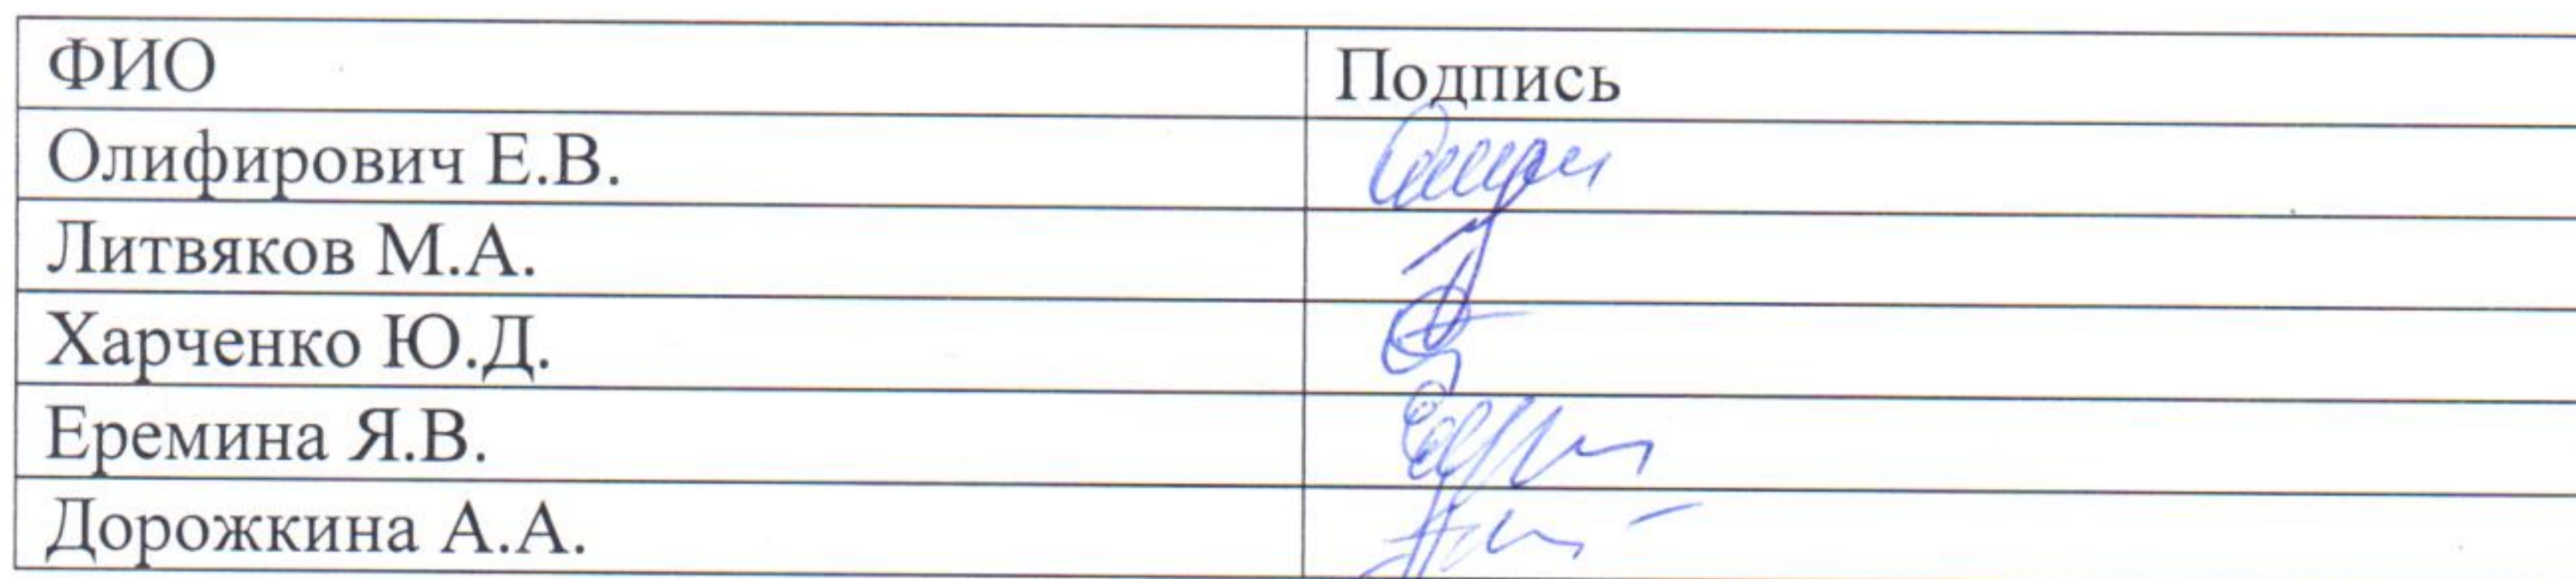 ФИО Подпись
Олифирович Е.В.
Литвяков М.А.
Харченко Ю.Д.
Еремина Я.В.
Дорожкина А.А.